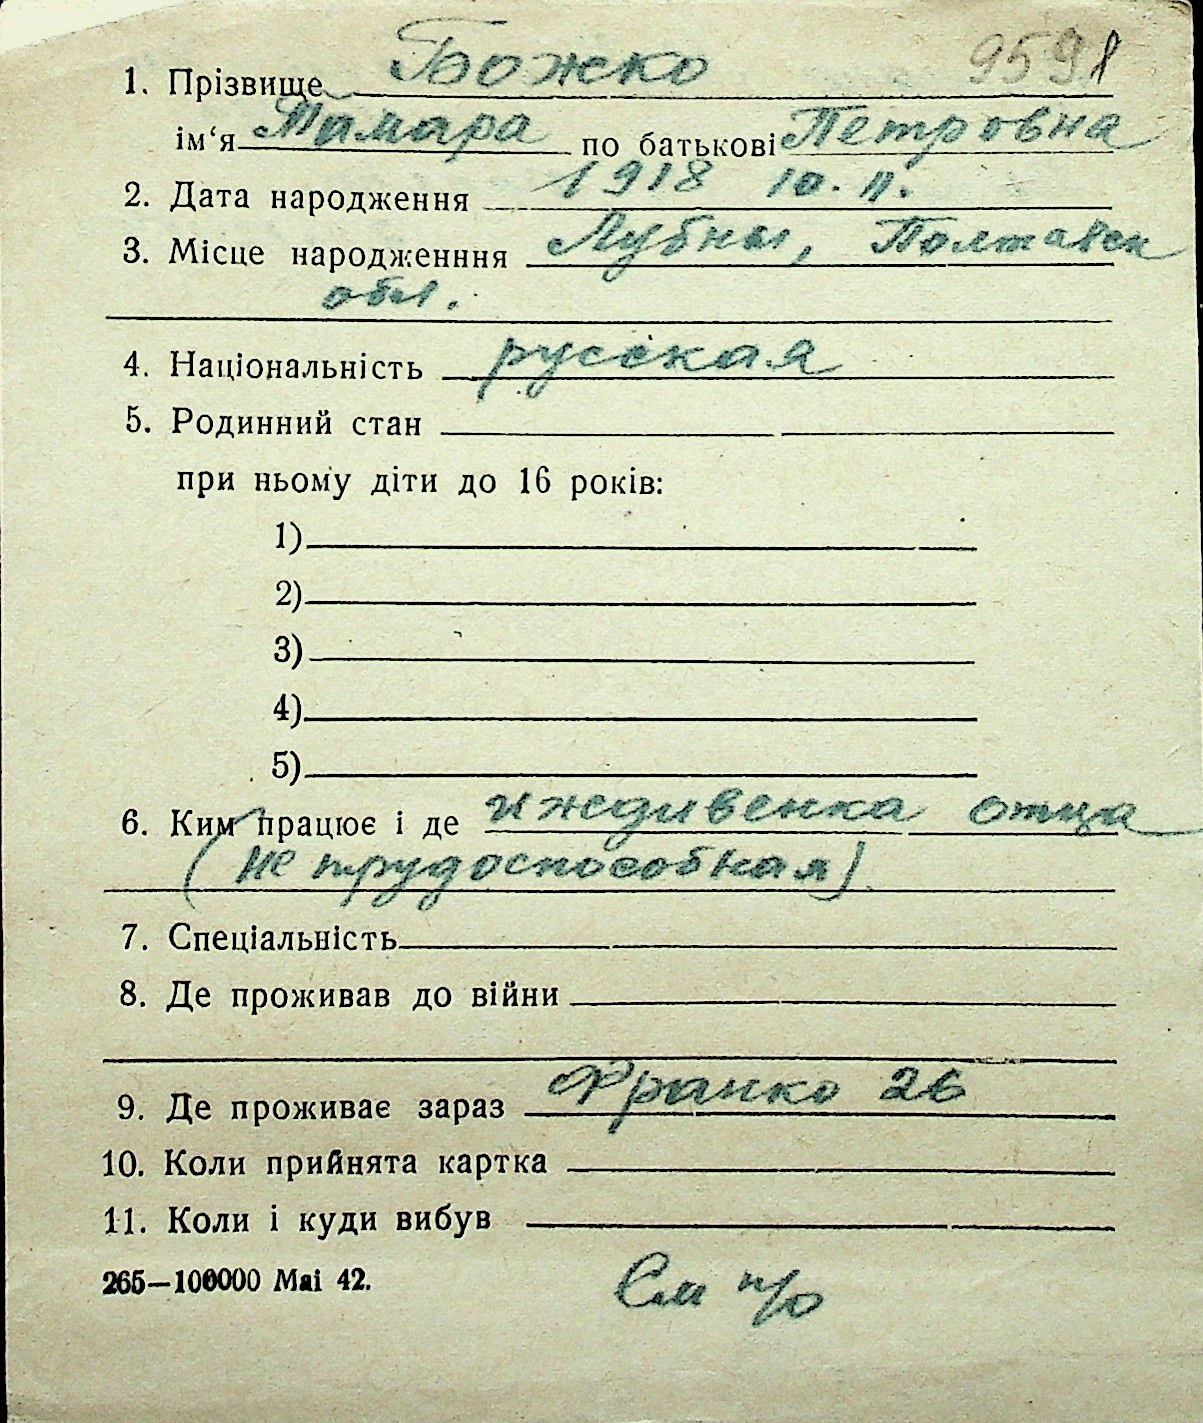 9598
1. Прізвище Божко
ім‘я Тамара по батькові Петровна
2. Дата народження 1918 10. II.
3. Місце народженння Лубны, Полтавск
обл.
4. Національність русская
5. Родинний стан
при ньому діти до 16 років:
1)
2)
3)
4)
5)
6. Ким працює і де иждивенка отца
(не трудоспособная)
7. Спеціальність
8. Де проживав до війни
9. Де проживає зараз Франко 26
10. Коли прийнята картка
11. Коли і куди вибув
265—100000 Mai 42.
См н/о